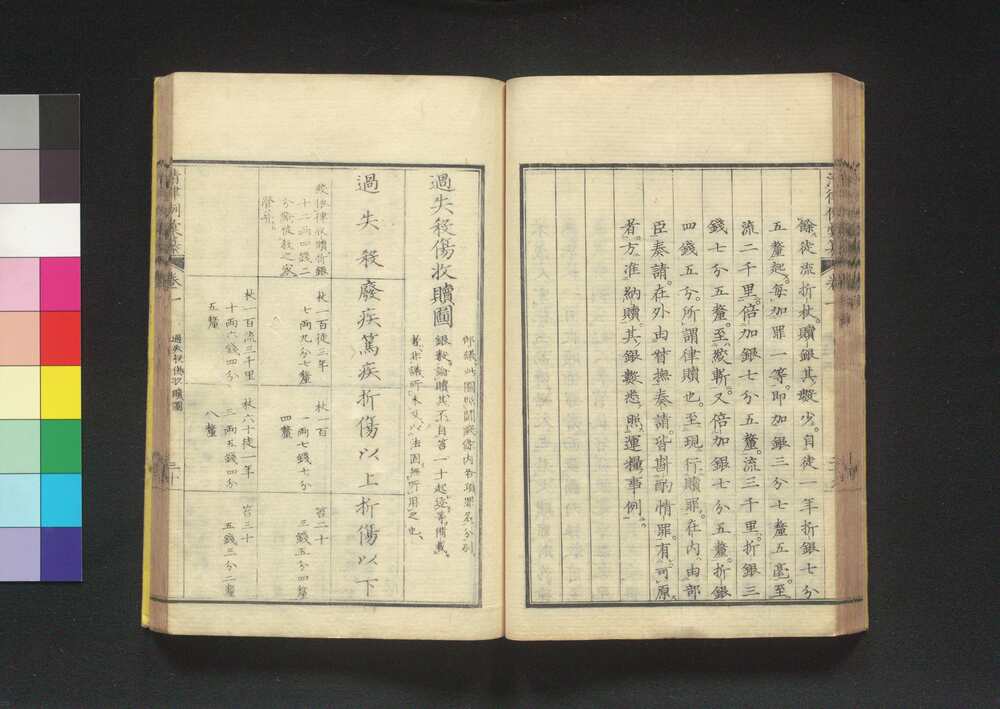 餘徒流折杖。贖銀其數少。自徒一年折銀七分
五釐起。每加罪一等。即加銀三分七釐五毫。至
流二千里。倍加銀七分五釐。流三千里。折銀三
錢七分五釐。至絞斬。又倍加銀七分五釐。折銀
四錢五分。所謂律贖也。至現行贖罪。在內由部
臣奏請。在外由督撫奏請。皆斟酌情罪有可原
者。方准納贖。其銀數悉照運糧事例。
過失殺傷收贖圖
銀數論贖。其不自笞一十起。逐等備載
過失殺
廢疾篤疾
折傷以上
折傷以下
絞依律收贖折銀
十二兩四錢二
分給被殺之家
營葬。
杖一百徒三年
七兩九分七釐
杖百
一兩七錢七分
四釐
笞二十
三錢五分四釐
杖一百流三千里
十兩六錢四分
五釐
杖六十徒一年
三兩五錢四分
八釐
笞三十
五錢三分二釐
卷一
過失殺傷收贖圖
三十